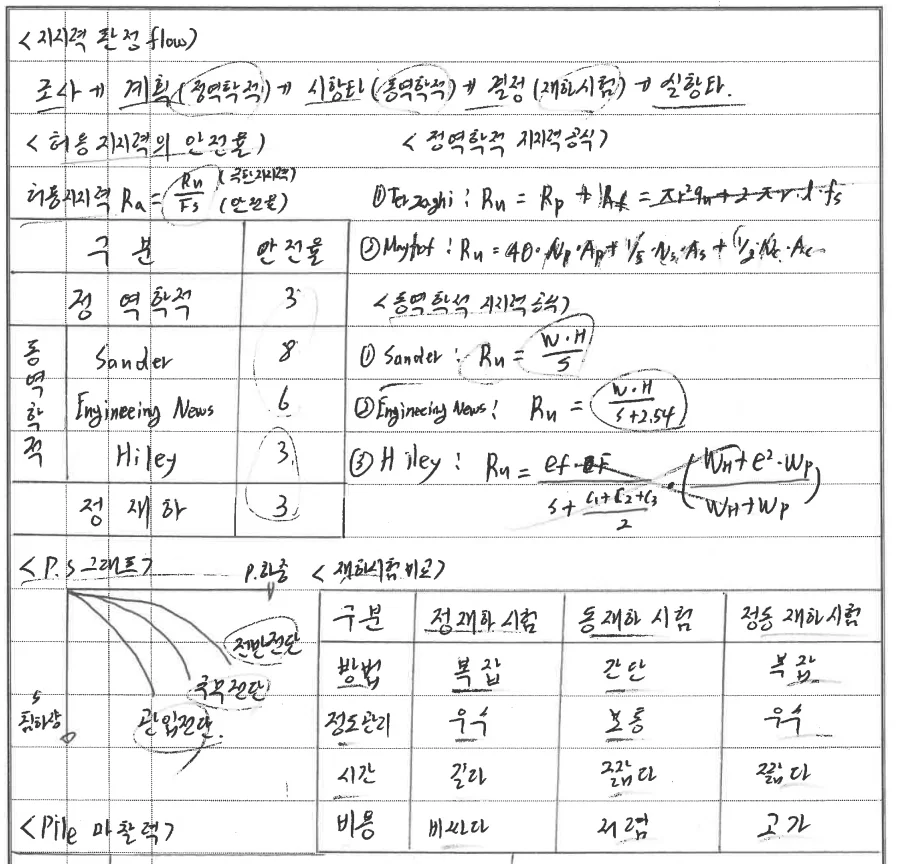 <지지력 판정 flow>
조사 → 계획 (정역학적) → 시항타 (동역학적) → 결정 (재하시험) → 실항타.
<허용 지지력의 안전율>
허용지지력 Ra = Ru (극한지지력) / Fs (안전율)
구분 안전율
정 역학적 3
동역학적
Sander 8
Engineeing News 6
Hiley 3
정 재하 3
<정역학적 지지력 공식>
① Terzaghi : Ru = Rp + Rf = πr²qu + 2πr·l·fs
② Meyhof : Ru = 40·Np·Ap + 1/5·Ns·As + 1/2·Nc·Ac
<동역학적 지지력 공식>
① Sander : Ru = W·H / S
② Engineeing News : Ru = W·H / S+2.54
③ Hiley : Ru = ef· / S + C1+C2+C3 / 2 · (WH+e²·Wp / WH+Wp)
<P.S 그래프>
P.하중
전반전단
국부전단
관입전단.
S
침하량
<재하시험 비교>
구분 정재하 시험 동재하 시험 정동 재하시험
방법 복잡 간단 복잡
정도관리 우수 보통 우수
시간 길다 짧다 짧다
비용 비싸다 저렴 고가
<Pile 마찰력>